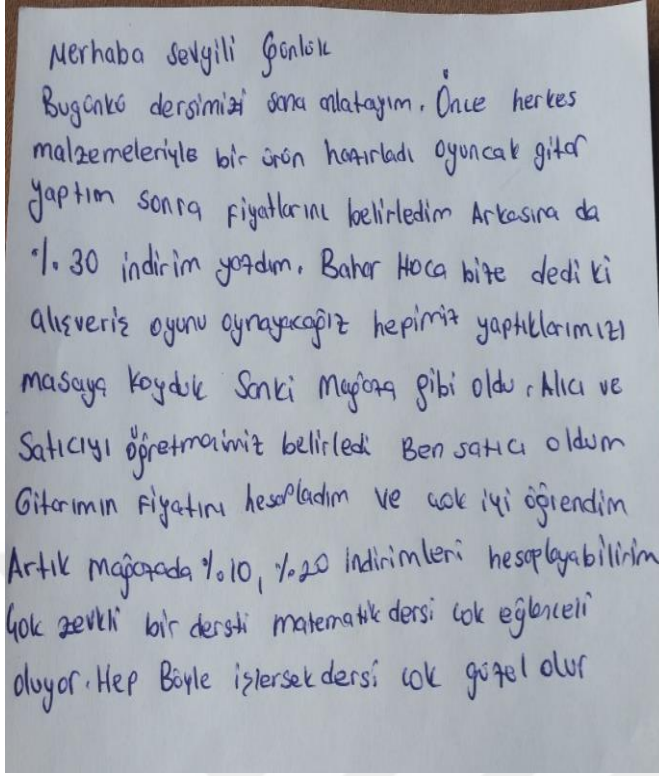 Merhaba Sevgili Günlük
Bugünkü dersimizi sana anlatayım. Önce herkes
malzemeleriyle bir ürün hazırladı oyuncak gitar
yaptım sonra Fiyatlarını belirledim Arkasına da
%30 indirim yazdım. Bahar Hoca bize dedi ki
alışveriş oyunu oynayacağız hepimiz yaptıklarımızı
masaya koyduk Sanki Mağaza gibi oldu. Alıcı ve
Satıcıyı öğretmenimiz belirledi Ben satıcı oldum
Gitarımın Fiyatını hesapladım ve çok iyi öğrendim
Artık mağazada %10, %20 indirimleri hesaplayabilirim
Çok zevkli bir dersti matematik dersi çok eğlenceli
oluyor. Hep Böyle işlersek dersi çok güzel olur